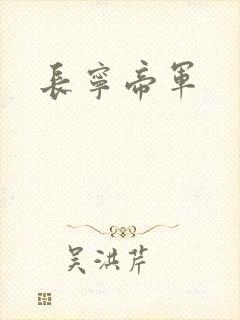 長寧帝軍
吴洪芹